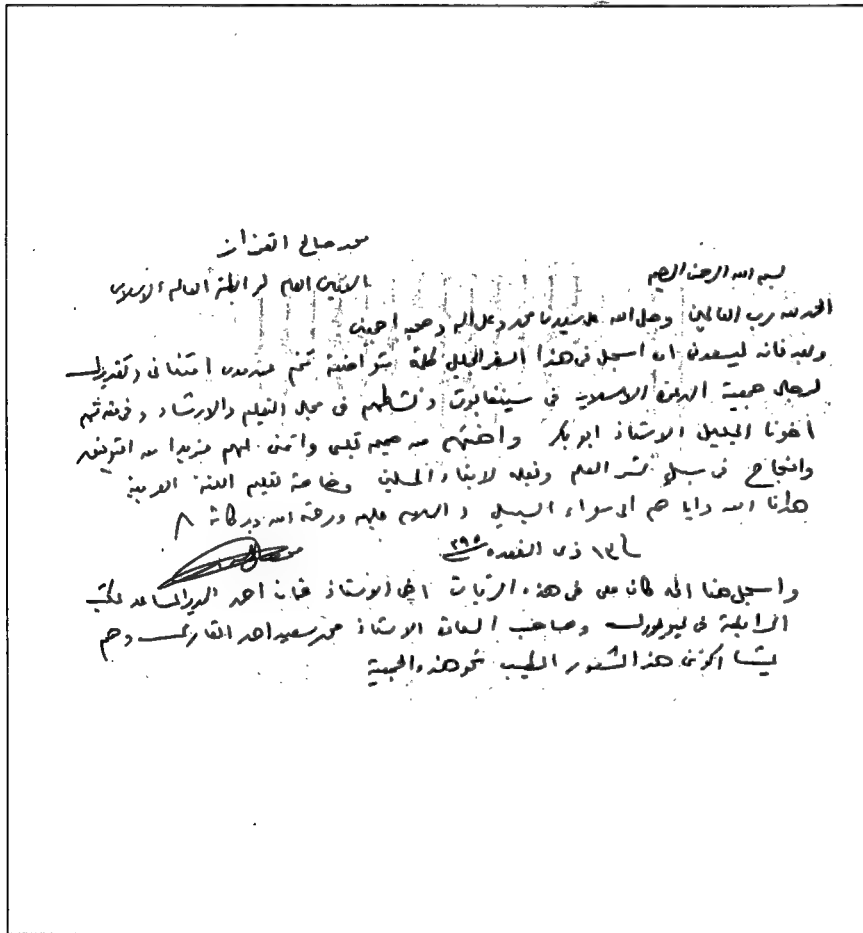 محمد صالح القزاز
الامين العام لرابطة العالم الاسلامي
بسم الله الرحمن الرحيم
الحمد لله رب العالمين وصلى الله على سيدنا محمد وعلى اله وصحبه اجمعين
وبعد فانه ليسعدني ان اسجل في هذا السفر الجليل كلمة متواضعة تنم عن مدى امتناني وتقديري
لرجال جمعية الدعوة الاسلامية في سينغابورت ونشاطهم في مجال التعليم والارشاد وفي مقدمتهم
اخونا الجليل الاستاذ ابو بكر واهنئهم من صميم قلبي واتمنى لهم مزيدا من التوفيق
والنجاح في سبيل نشر العلم ونقله لابناء المسلمين وخاصة تعليم اللغة العربية
هدانا الله واياهم الى سواء السبيل والسلام عليكم ورحمة الله وبركاته
١٣ ذى القعده ٣٩٥
واسجل هنا انه كان معى في هذه الزيارت اخي الاستاذ احمد المدير المساعد لمكتب
الرابطة في نيويورك وصاحب السعادة الاستاذ محمد سعيد احمد وهم
هذا الشعور الطيب نحو هذه الجمعية